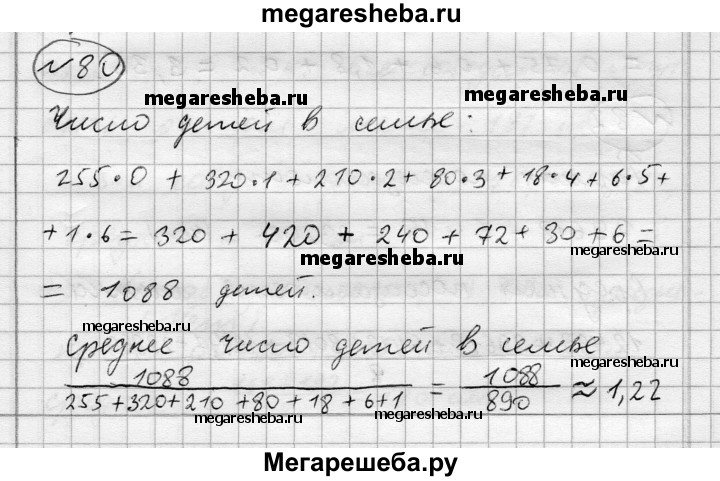 megaresheba.ru
№80
megaresheba.ru megaresheba.ru
Число детей в семье:
255·0 + 320·1 + 210·2 + 80·3 + 18·4 + 6·5 +
+ 1·6 = 320 + 420 + 240 + 72 + 30 + 6 =
megaresheba.ru megaresheba.ru
= 1088 детей.
megaresheba.ru megaresheba.ru
Среднее число детей в семье
1088 / 255+320+210+80+18+6+1 = 1088 / 890 ≈ 1,22
megaresheba.ru megaresheba.ru
Мегарешеба.ру